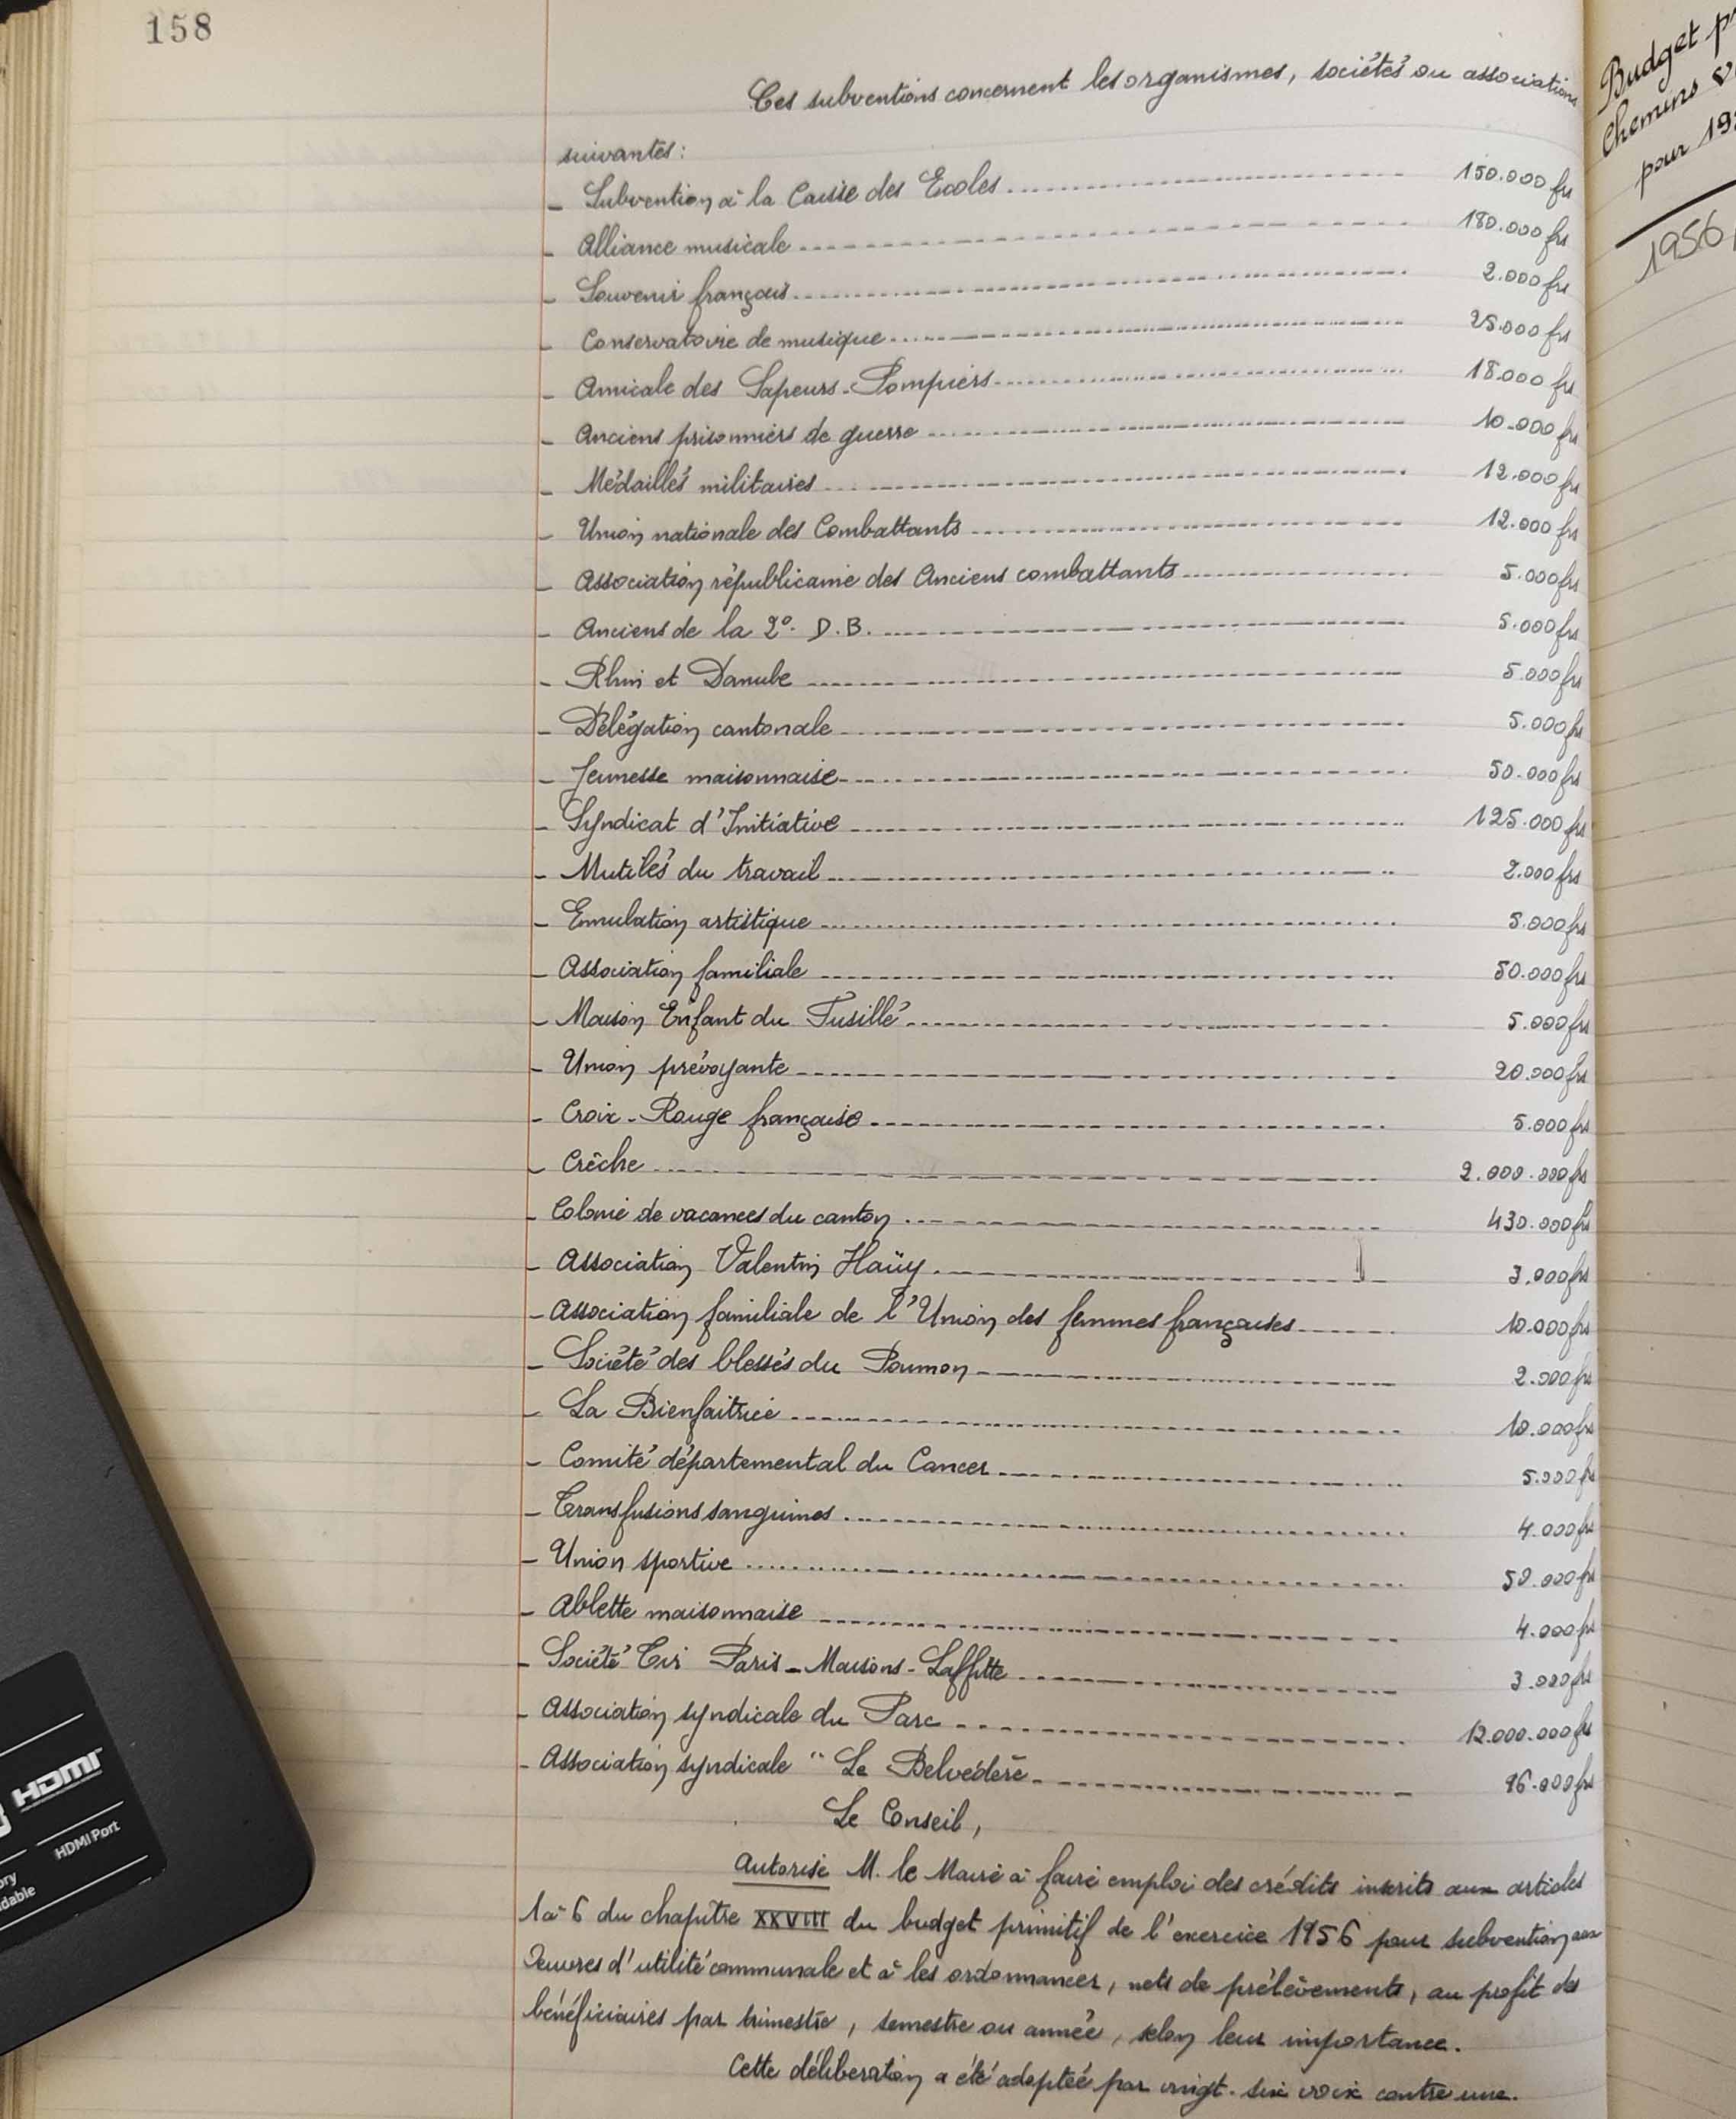 158
Ces subventions concernent les organismes, sociétés ou associations
suivantes :
- Subvention à la Caisse des Ecoles 150.000 frs
- Alliance musicale 180.000 frs
- Souvenir français 2.000 frs
- Conservatoire de musique 25.000 frs
- Amicale des Sapeurs-Pompiers 18.000 frs
- Anciens prisonniers de guerre 10.000 frs
- Médaillés militaires 12.000 frs
- Union nationale des Combattants 12.000 frs
- Association républicaine des Anciens combattants 5.000 frs
- Anciens de la 2° D.B. 5.000 frs
- Rhin et Danube 5.000 frs
- Délégation cantonale 5.000 frs
- Jeunesse maisonnaise 50.000 frs
- Syndicat d'Initiative 125.000 frs
- Mutilés du travail 2.000 frs
- Emulation artistique 5.000 frs
- Association familiale 50.000 frs
- Maison Enfant du Fusillé 5.000 frs
- Union prévoyante 20.000 frs
- Croix-Rouge française 5.000 frs
- Crèche 2.000.000 frs
- Colonie de vacances du canton 430.000 frs
- Association Valentin Haüy 3.000 frs
- Association familiale de l'Union des femmes françaises 10.000 frs
- Société des blessés du Poumon 2.000 frs
- La Bienfaitrice 10.000 frs
- Comité départemental du Cancer 5.000 frs
- Transfusions sanguines 4.000 frs
- Union sportive 50.000 frs
- Ablette maisonnaise 4.000 frs
- Société Tir Paris-Maisons-Laffitte 3.000 frs
- Association syndicale du Parc 12.000.000 frs
- Association syndicale " Le Belvédère 96.000 frs
Le Conseil,
Autorise M. le Maire à faire emploi des crédits inscrits aux articles
1 à 6 du chapitre XXVIII du budget primitif de l'exercice 1956 pour subvention aux
Œuvres d'utilité communale et à les ordonnancer, nets de prélèvements, au profit des
bénéficiaires par trimestre, semestre ou année, selon leur importance.
Cette délibération a été adoptée par vingt-six voix contre une.
Budget
Chemins
pour
1956
HDMI
HDMI Port